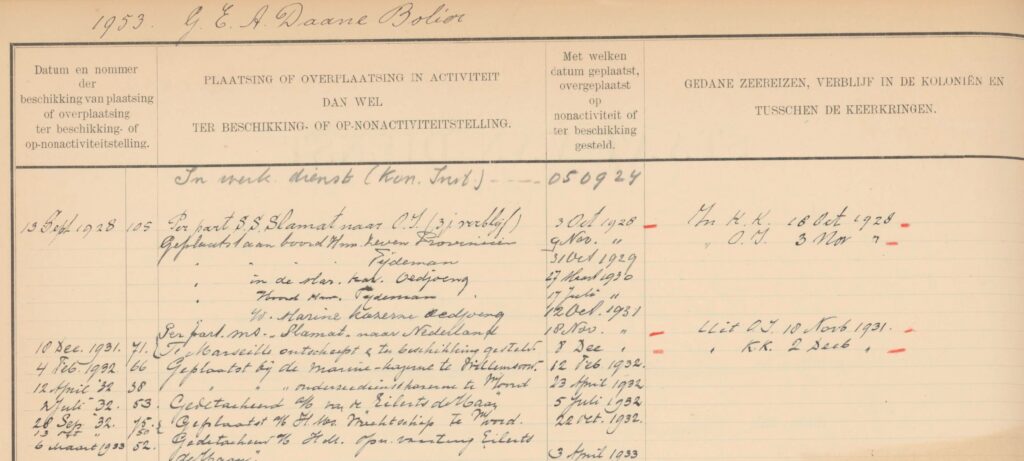 1953. G. E. A. Daane Bolier
Datum en nommer
der
beschikking van plaatsing
of overplaatsing
ter beschikking- of
op-nonactiviteitstelling.
PLAATSING OF OVERPLAATSING IN ACTIVITEIT
DAN WEL
TER BESCHIKKING- OF OP-NONACTIVITEITSTELLING.
Met welken
datum geplaatst,
overgeplaatst
op
nonactiviteit of
ter beschikking
gesteld.
GEDANE ZEEREIZEN, VERBLIJF IN DE KOLONIËN EN
TUSSCHEN DE KEERKRINGEN.
In werk. dienst (Kon. Inst.) 050924
13 Sept 1928 105 Per part S.S. Slamat naar O.I. (3 j verblijf) 3 Oct 1928 In K.K. 18 Oct 1928
Geplaatst aan boord Hr. Ms. Zeven Provincien 9 Nov. " " O.I. 3 Nov "
" " " Tijdeman 31 Oct 1929
" in de Mar. kaz. Oedjoeng 27 Maart 1930
" Tijdeman 17 Juli "
Marine kazerne Oedjoeng 12 Oct. 1931
Per part. ms. Slamat naar Nederland 18 Nov. " Uit O.I. 10 Novb 1931.
10 Dec. 1931. 71. Te Marseille ontscheept & ter beschikking gesteld 8 Dec " " KK. 2 Decb "
4 Feb. 1932 66 Geplaatst bij de marine-kazerne te Willemsoord 12 Feb. 1932.
12 April '32 38 " " onderzeedienstkazerne te W'oord 23 April 1932
Juli '32. 53. Gedetacheerd "Eilerts de Haan" 5 Juli 1932
28 Sep. '32. 75. Geplaatst Wachtschip te W'oord. 22 Oct. 1932.
6 Maart 1933 52. Gedetacheerd Eilerts
de Haan" 3 April 1933